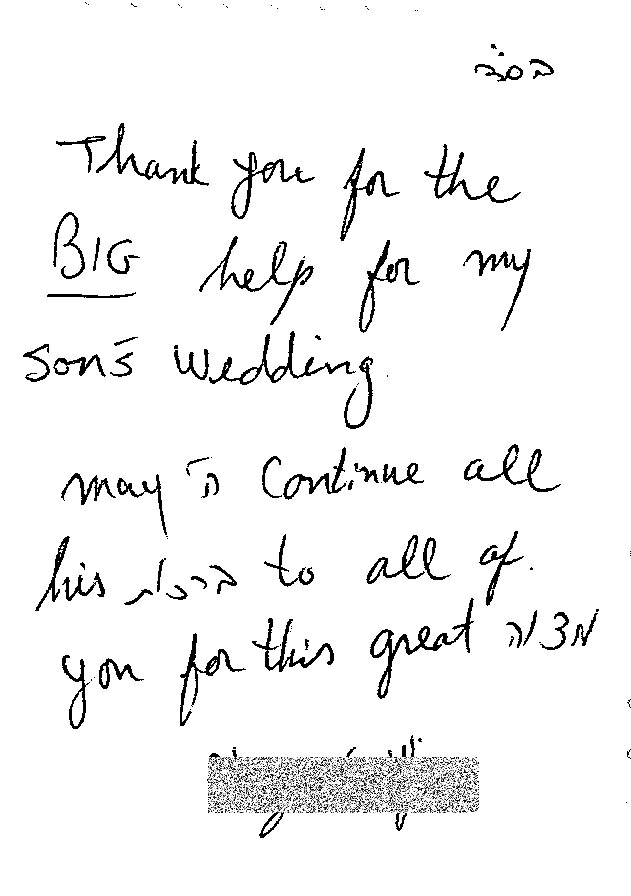 בס"ד
Thank you for the
BIG help for my
son's wedding
may ה' continue all
his ברכות to all of
you for this great מצוה